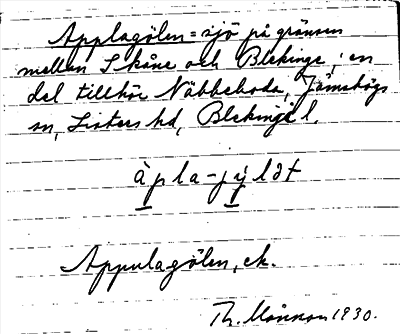 Applagölen = sjö på gränsen
mellan Skåne och Blekinge; en
del tillhör Näbbeboda, Jämshögs
sn, Listers hd, Blekinge l.
àpla-jyl
Appulagölen, ek.
Th. 1930.